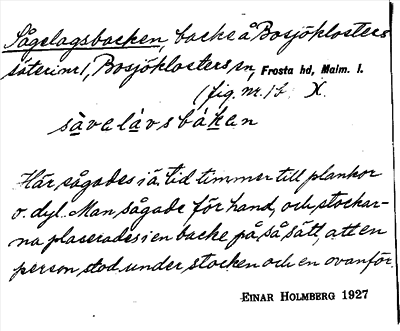 Sågelagsbacken, backe å Bosjöklosters
säterim/, Bosjöklosters sn, Frosta hd, Malm. l.
(fig. nr. 1 b X.
sàvelàvsbáken
Här sågades i ä. tid timmer till plankor
o. dyl. Man sågade för hand, och stockar-
na placerades i en backe på så sätt, att en
person stod under stocken och en ovanför.
EINAR HOLMBERG 1927